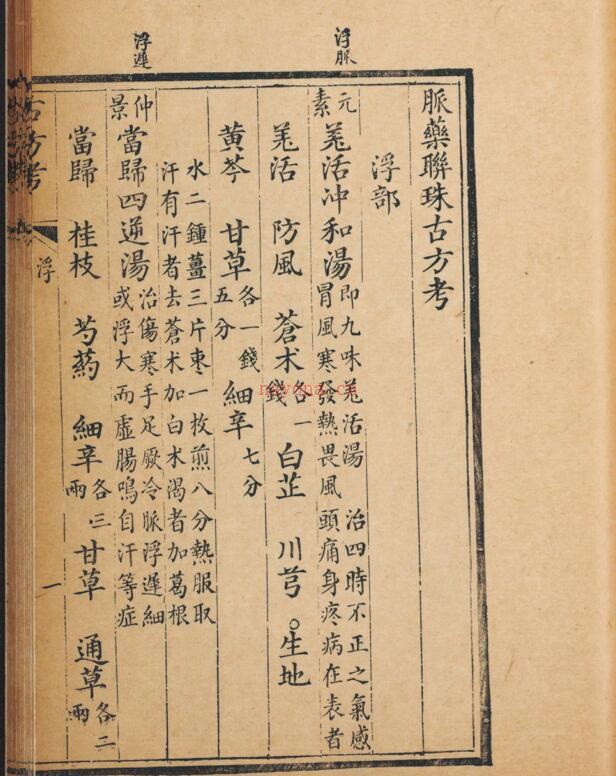 浮脈
浮遲
脈藥聯珠古方考
浮部
元素
羗活冲和湯
即九味羗活湯 治四時不正之氣感
冒風寒發熱畏風 頭痛身疼病在表者
羗活 防風 蒼术各一錢 白芷 川芎 生地
黄芩 甘草各一錢五分 細辛七分
水二鍾薑三片枣一枚煎八分熱服取
汗有汗者去蒼术加白术渴者加葛根
仲景
當歸四逆湯
治傷寒手足厥冷脈浮遲細
或浮大而虛腸鳴自汗等症
當歸 桂枝 芍藥 細辛各三兩 甘草 通草各二兩
古方考
浮
一